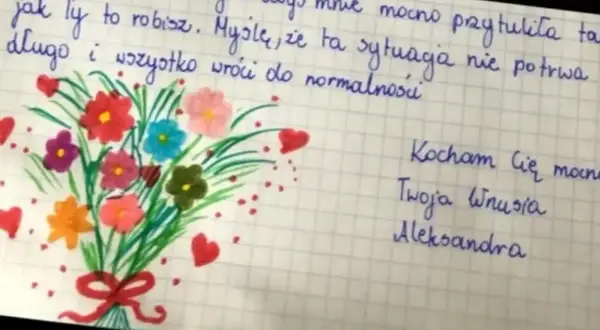 mnie mocno przytuliła
jak Ty to robisz. Myślę, że ta sytuacja nie potrwa
długo i wszystko wróci do normalności
Kocham Cię
Twoja Wnusia
Aleksandra